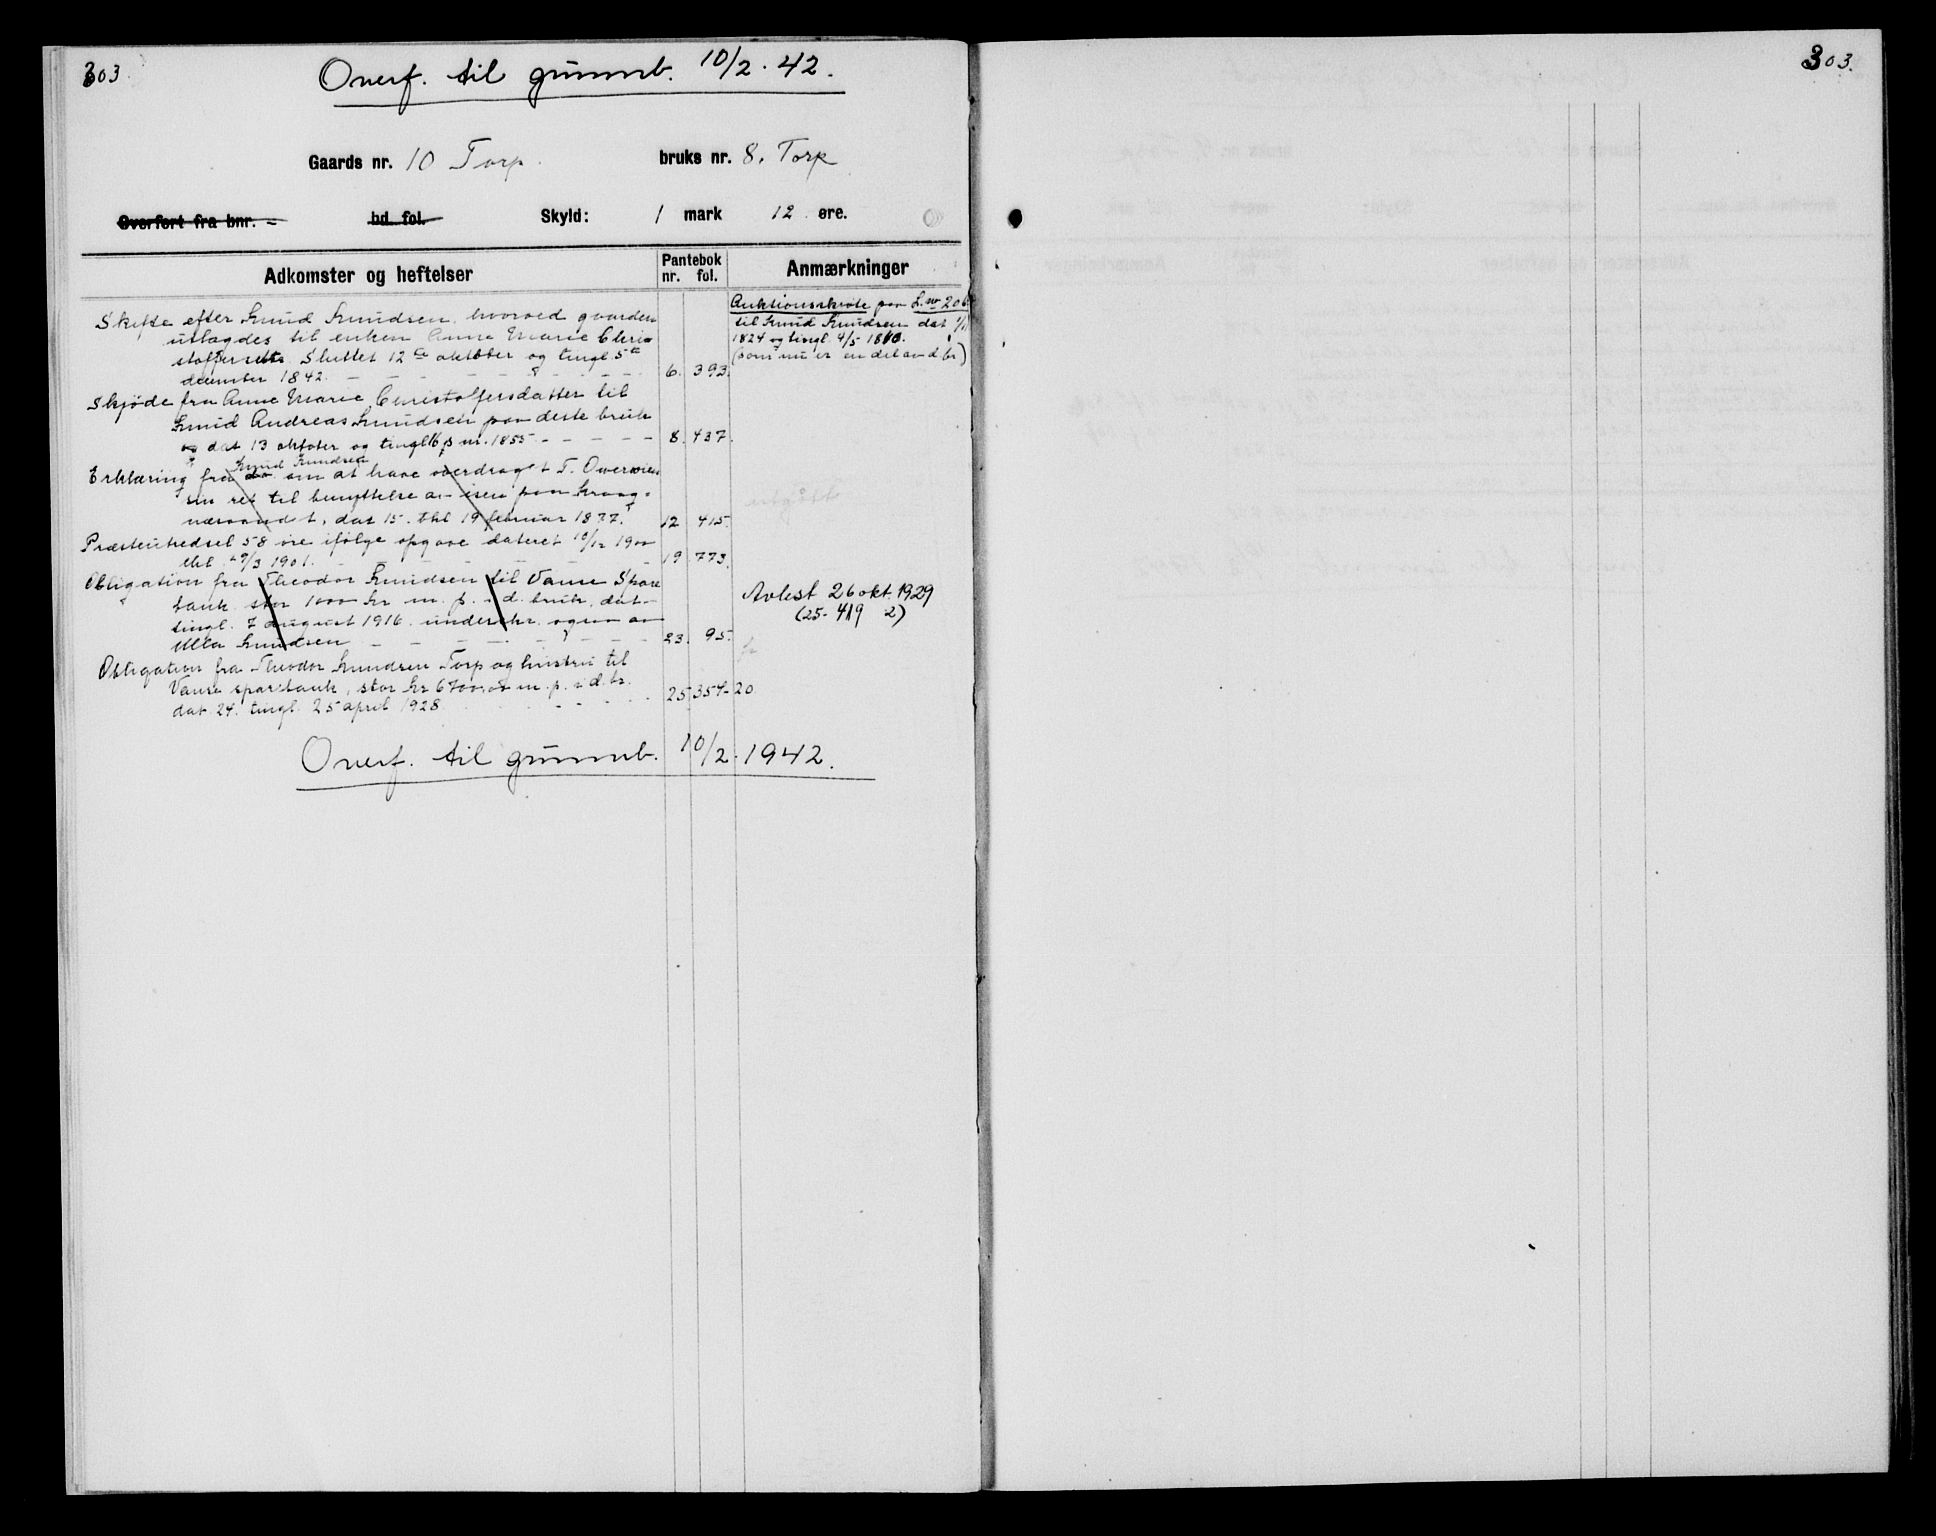 303.
Overf. til grunnb. 10/2. 42.
Gaards nr. 10 Torp. bruks nr. 8. Torp
Overført fra bnr. - bd. fol. Skyld: 1 mark 12 øre.
Adkomster og heftelser Pantebok nr. fol. Anmærkninger
Auktionsskjøte paa L. nr 206
til Knud Knudsen dat
1824 og tingl. 4/5
(som nu er en del av d. br)
Skifte efter Knud Knudsen hvorved gaarden
utlagdes til enken Anne Marie Chris-
Sluttet 12te oktober og tingl 5te
december 1842. - - - - - - - 6. 393.
Skjøde fra Anne Marie Christoffersdatter til
Knud Andreas Knudsen paa dette bruk
dat 13 oktober og tingl 16 s m. 1855 - - - - - 8. 437.
Knud Knudsen
Erklæring fra do om at have overdraget T. Overwien
sin ret til benyttelse av isen paa
dat 15. thl 19 februar 1877. 12 415.
Præsteutredsel 58 øre ifølge opgave dateret 10/12 1900
thl 29/3 1901. - - - - - 19 773.
Obligation fra Theodor Knudsen til Vanse Spare
bank stor 1000 kr m. p. i d. bruk, dat
tingl. 7 august 1916. underskr. ogsaa av
Knudsen - - - - - - 23. 95.
Avlest 26 okt. 1929
(25- 419 2)
Obligation fra Theodor Knudsen Torp og hustru til
Vanse sparebank, stor kr 6700,00 m. p. i d. br.
dat 24. tingl. 25 april 1928 - - - 25 354-20
Overf. til grunnb. 10/2. 1942.
303.